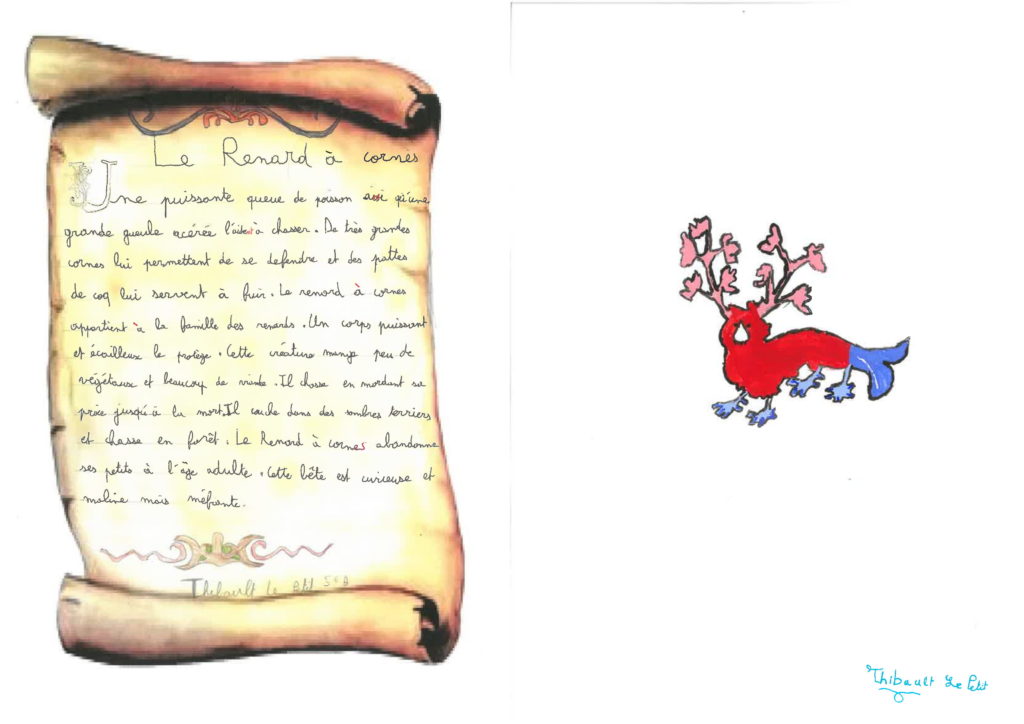 Le Renard à cornes
Une puissante queue de poisson ainsi qu'une
grande gueule acérée l'aident à chasser. De très grandes
cornes lui permettent de se defendre et des pattes
de coq lui servent à fuir. Le renard à cornes
appartient à la famille des renards. Un corps puissant
et écailleux le protège. Cette créature mange peu de
végétaux et beaucoup de viande. Il chasse en mordant sa
proie jusqu'à la mort. Il couche dans des sombres terriers
et chasse en forêt. Le Renard à cornes abandonne
ses petits à l'âge adulte. Cette bête est curieuse et
maline mais méfiante.
Thibault Le Petit
Thibault Le Petit